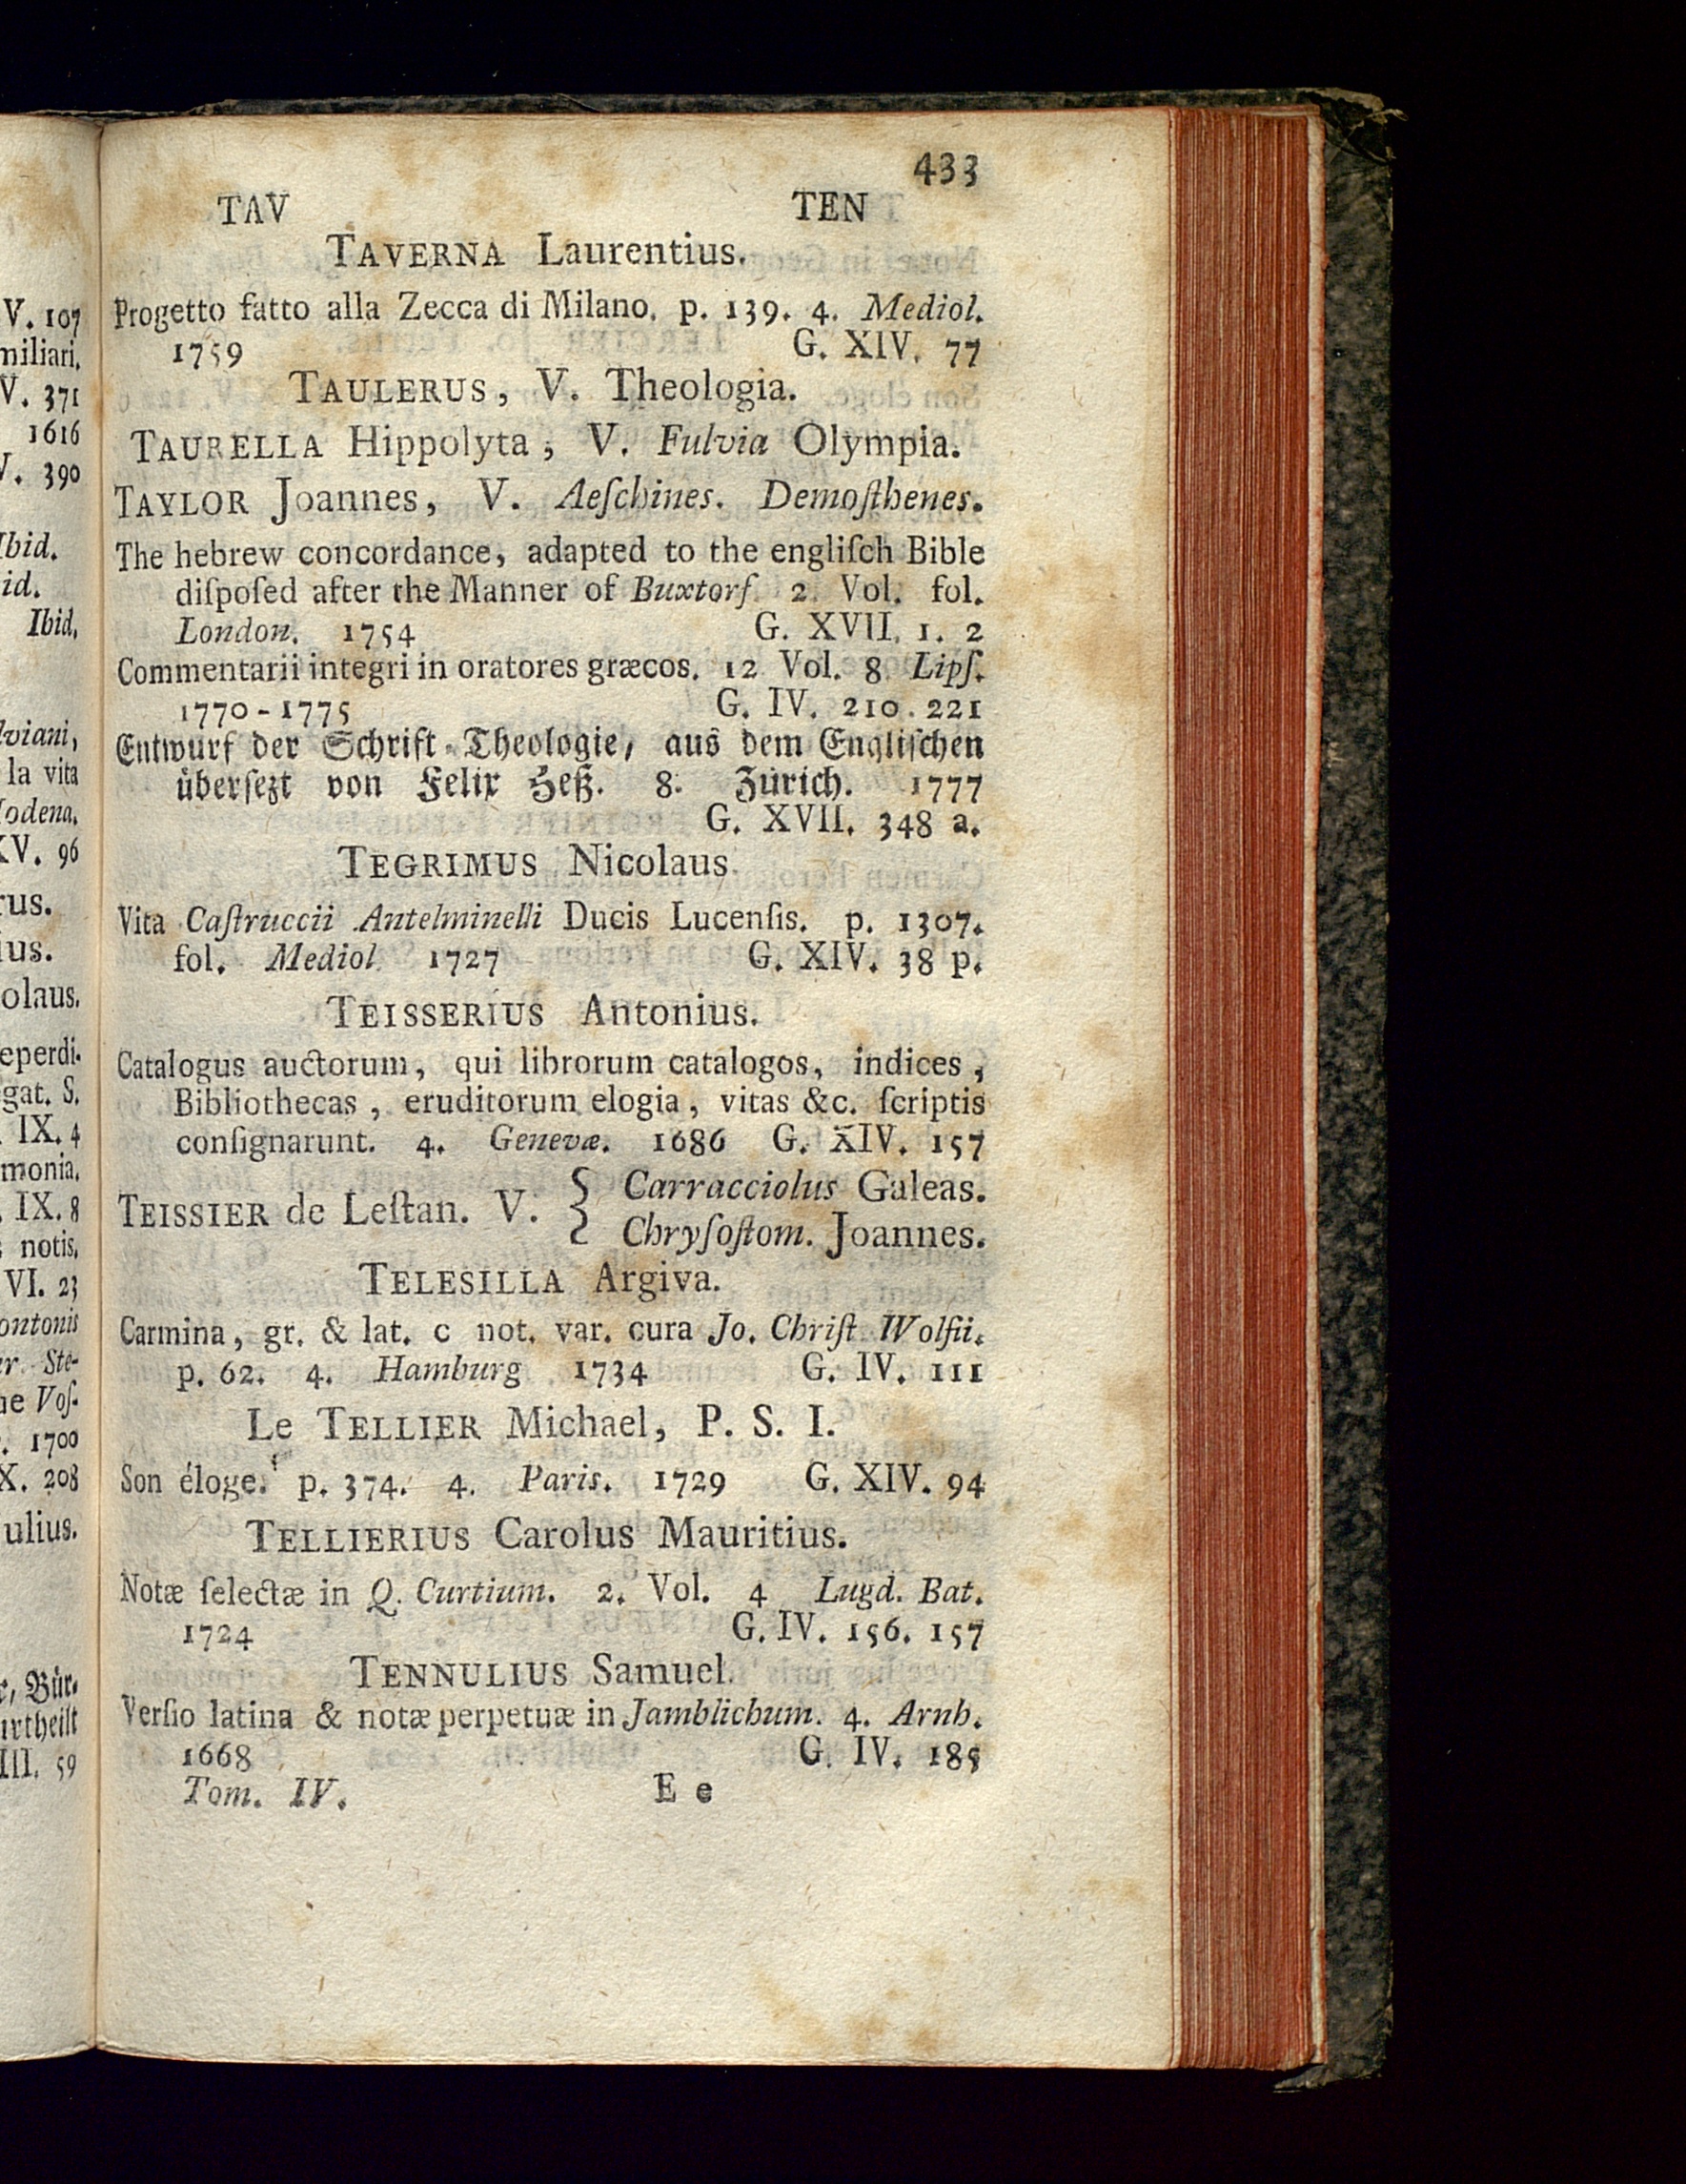 433
TAV TEN
TAVERNA Laurentius.
Progetto fatto alla Zecca di Milano. p. 139. 4. Mediol.
1759 G. XIV. 77
TAULERUS, V. Theologia.
TAURELLA Hippolyta, V. Fulvia Olympia.
TAYLOR Joannes, V. Aeſchines. Demoſthenes.
The hebrew concordance, adapted to the engliſch Bible
diſpoſed after the Manner of Buxtorf 2. Vol. fol.
London. 1754 G. XVII. 1. 2
Commentarii integri in oratores græcos. 12 Vol. 8 Lipſ.
1770-1775 G. IV. 210. 221
Entwurf der Schrift-Theologie, aus dem Engliſchen
überſezt von Felix Heß. 8. Zürich. 1777
G. XVII. 348 a.
TEGRIMUS Nicolaus.
Vita Caſtruccii Antelminelli Ducis Lucenſis. p. 1307.
fol. Mediol. 1727 G. XIV. 38 p.
TEISSERIUS Antonius.
Catalogus auctorum, qui librorum catalogos, indices,
Bibliothecas, eruditorum elogia, vitas &c. ſcriptis
conſignarunt. 4. Genevæ. 1686 G. XIV. 157
TEISSIER de Leſtan. V. { Carracciolus Galeas.
Chryſoſtom. Joannes.
TELESILLA Argiva.
Carmina, gr. & lat. c not. var. cura Jo. Chriſt Wolfii.
p. 62. 4. Hamburg 1734 G. IV. 111
Le TELLIER Michael, P. S. I.
Son éloge. p. 374. 4. Paris. 1729 G. XIV. 94
TELLIERIUS Carolus Mauritius.
Notæ ſelectæ in Q. Curtium. 2. Vol. 4 Lugd. Bat.
1724 G. IV. 156. 157
TENNULIUS Samuel.
Verſio latina & notæ perpetuæ in Jamblichum. 4. Arnh.
1668 G. IV. 185
Tom. IV. E e
V. 107
miliari.
V. 371
1616
V. 390
Ibid.
id.
Ibid.
lviani,
la vita
Modena.
XV. 96
rus.
ius.
olaus.
eperdi-
gat. S.
IX. 4
monia.
IX. 8
notis.
VI. 23
ontonis
er Ste-
ne Voſ-
1700
X. 208
ulius.
r, Bür-
urtheilt
III. 59